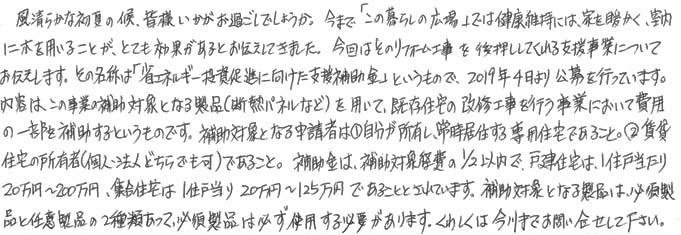 風清らかな初夏の候、皆様いかがお過ごしでしょうか。今まで「この暮らしの広場」では健康維持には、家を暖かく、室内
に木を用いることが、とても効果があるとお伝えしてきました。今回はそのリフォーム工事を後押ししてくれる支援事業について
お伝えします。その名称は「省エネルギー投資促進に向けた支援補助金」というもので、2019年4月より公募を行っています。
内容は、この事業の補助対象となる製品(断熱パネルなど)を用いて、既存住宅の改修工事を行う事業において費用
の一部を補助するというものです。補助対象となる申請者は①自分が所有し、常時居住する専用住宅であること。②賃貸
住宅の所有者(個人・法人どちらでも可)であること。補助金は、補助対象経費の1/2以内で、戸建住宅は、1住戸当たり
20万円~200万円、集合住宅は1住戸当り20万円~125万円であることとされています。補助対象となる製品は、必須製
品と任意製品の2種類あって、必須製品は必ず使用する必要があります。くわしくは今川までお問い合せして下さい。